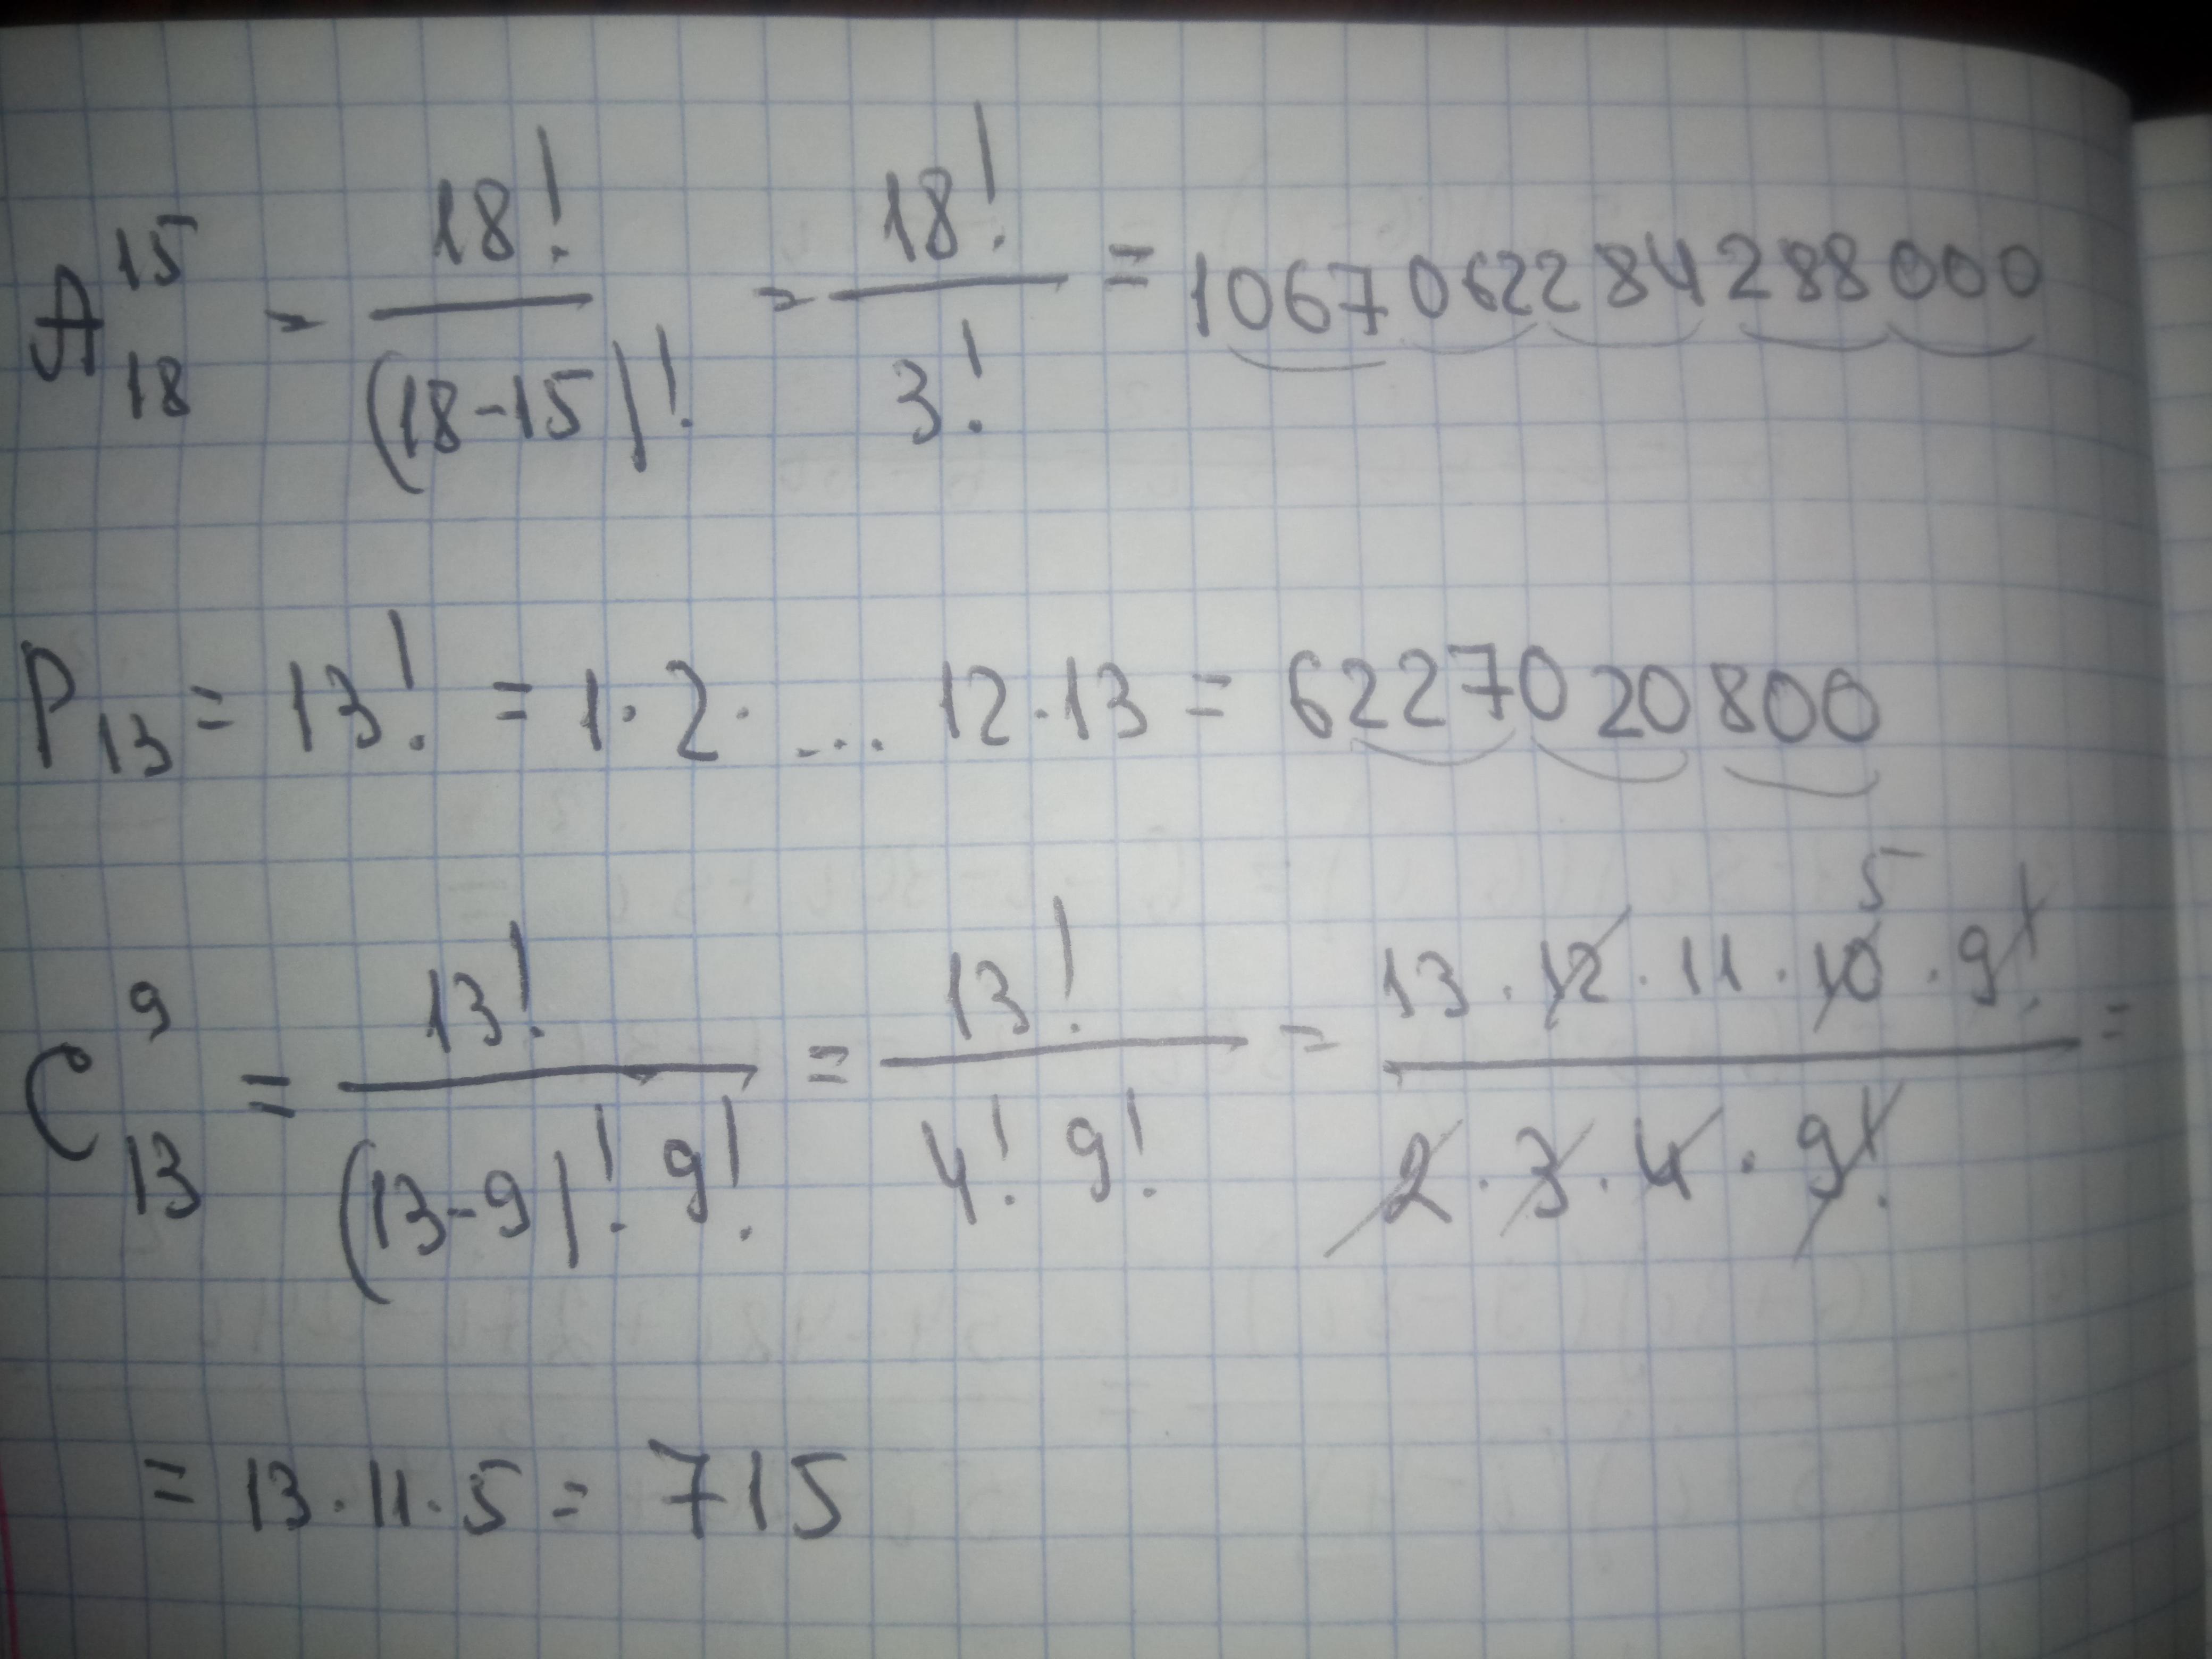 A₁₈¹⁵ = 18! / (18-15)! = 18! / 3! = 1067062284288000
P₁₃ = 13! = 1·2· ... 12·13 = 6227020800
C₁₃⁹ = 13! / (13-9)! 9! = 13! / 4! 9! = 13·12·11·10 5·9! / 2·3·4·9! =
= 13·11·5 = 715